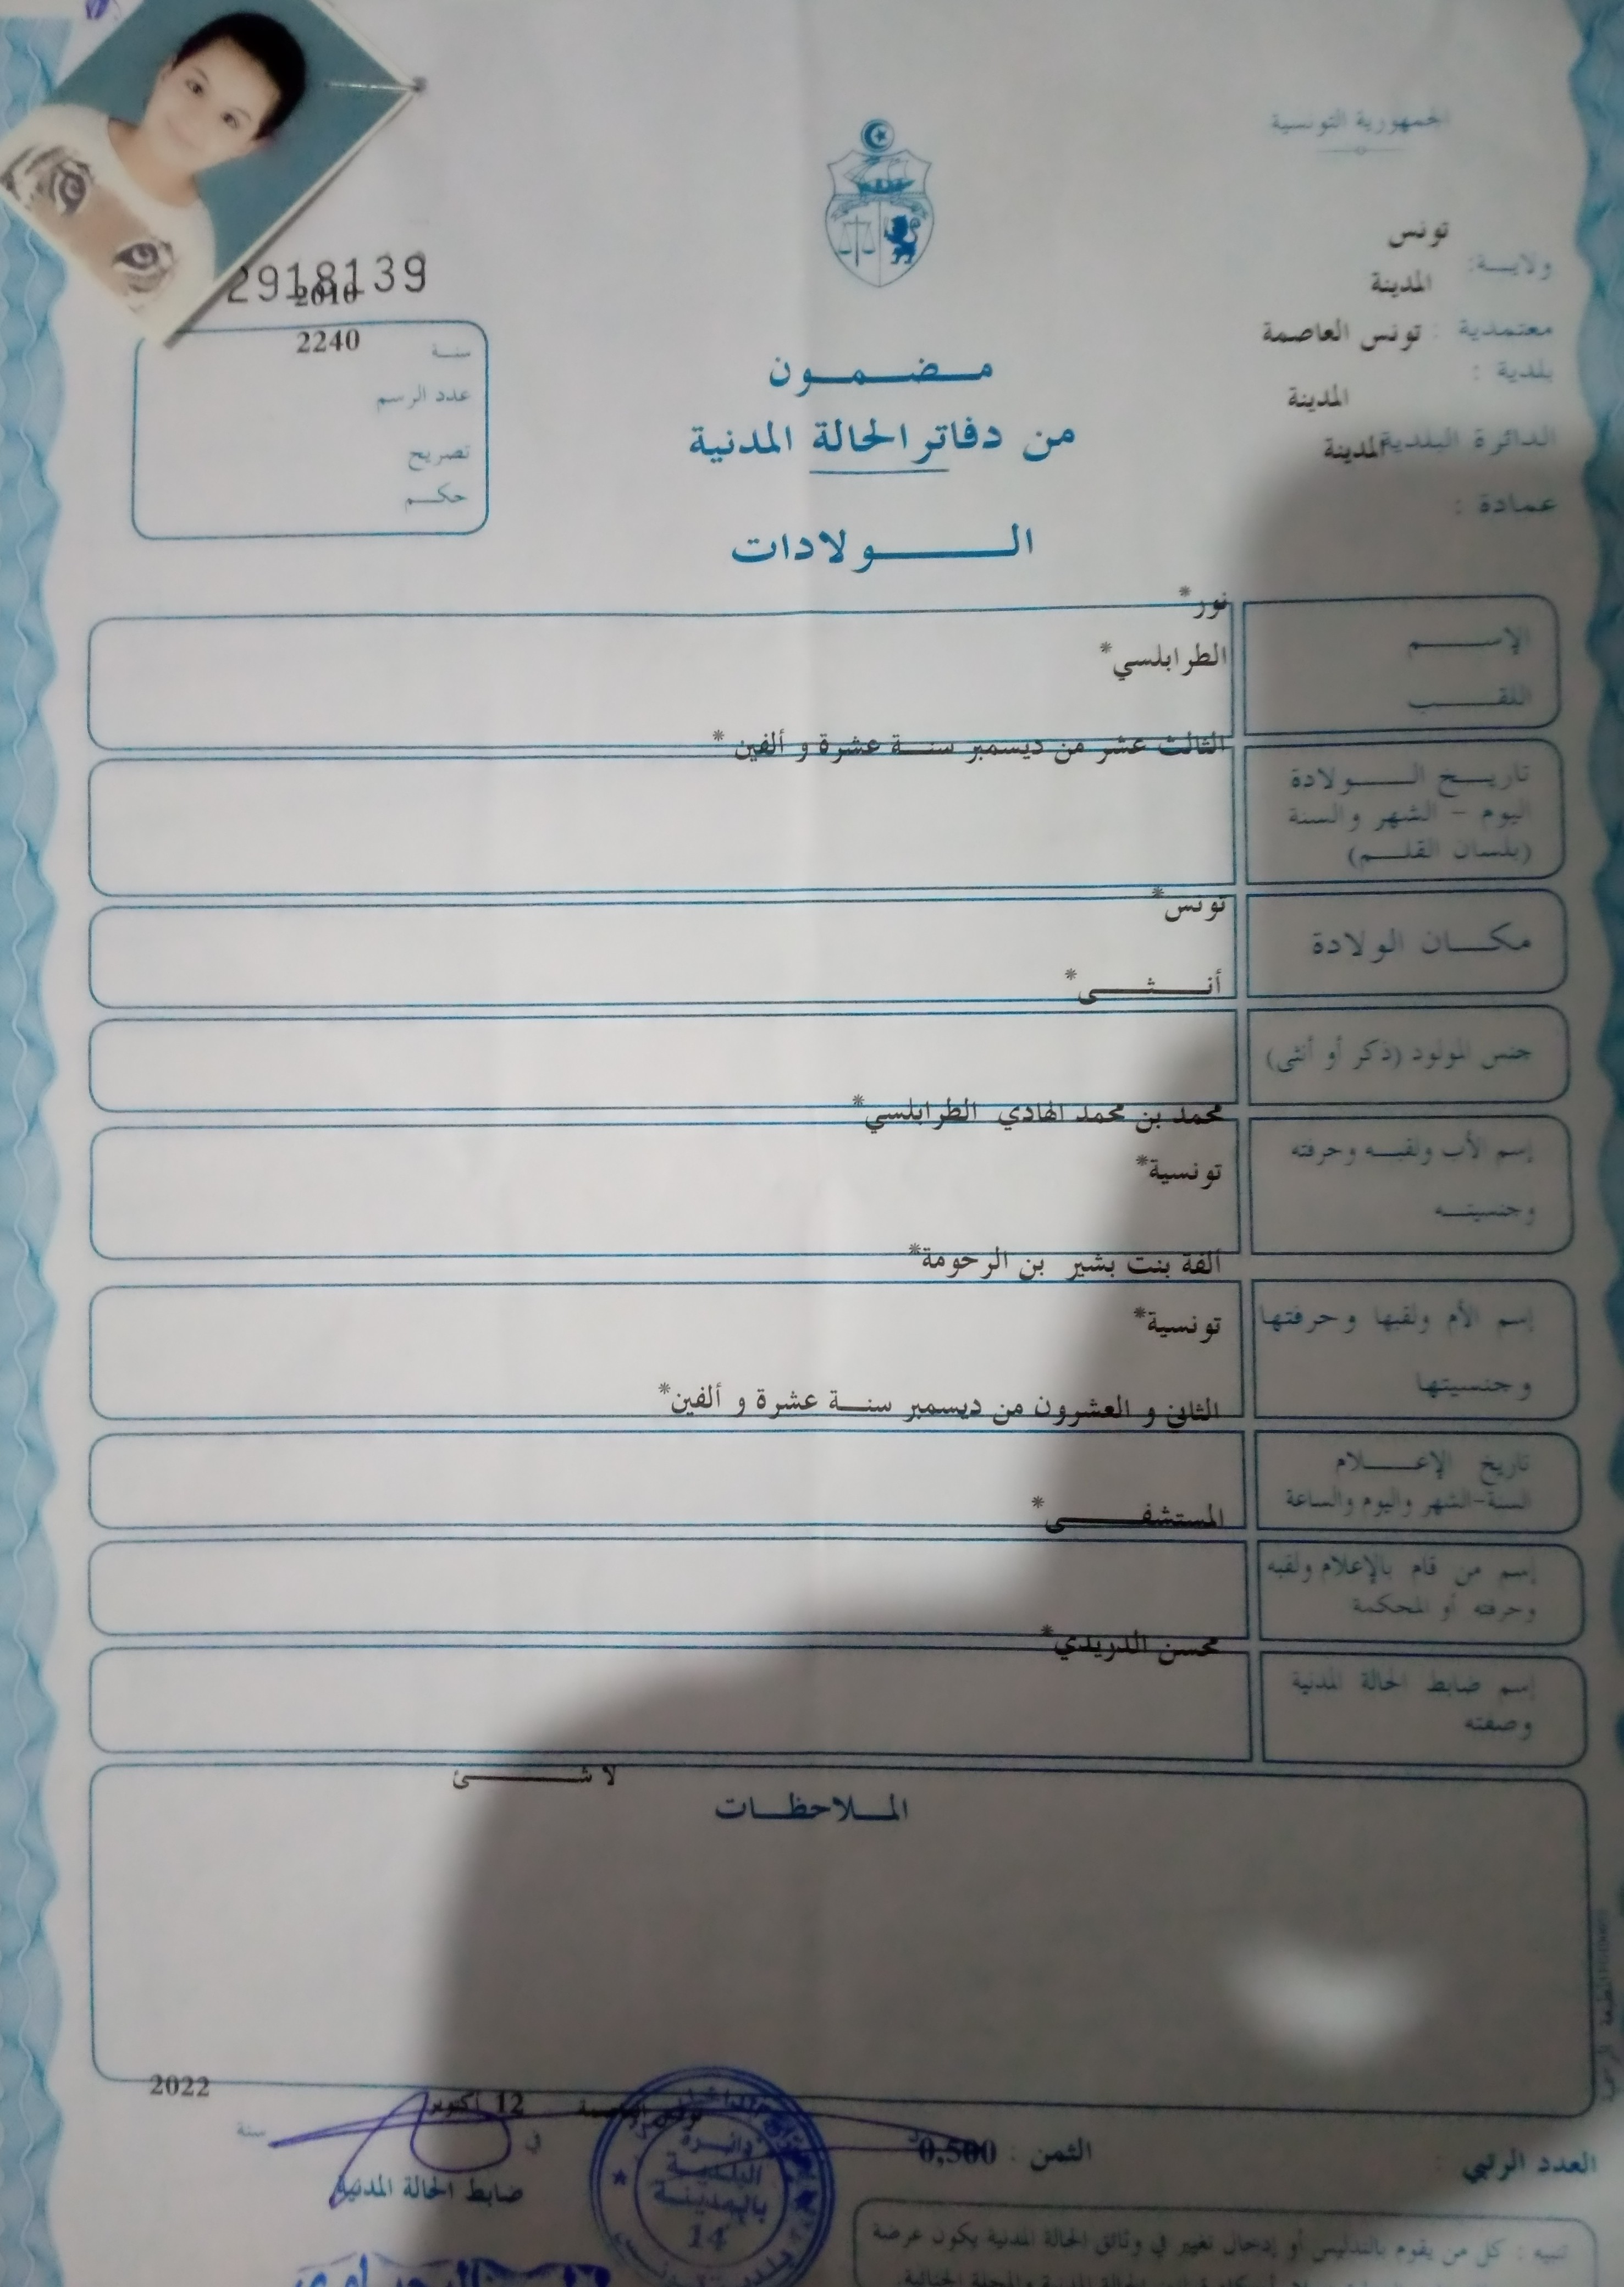 الجمهورية التونسية
ولاية: تونس
المدينة
معتمدية : تونس العاصمة
بلدية :
المدينة
الدائرة البلدية المدينة
عمادة :
2918139
2010
2240
سنة
عدد الرسم
تصريح
حكم
مضمون
من دفاتر الحالة المدنية
الولادات
نور*
الإسم
الطرابلسي*
اللقب
الثالث عشر من ديسمبر سنة عشرة و ألفين *
تاريخ الولادة
اليوم - الشهر والسنة
(بلسان القلم)
تونس*
مكان الولادة
أنثى*
جنس المولود (ذكر أو أنثى)
محمد بن محمد الهادي الطرابلسي*
إسم الأب ولقبه وحرفته
تونسية*
وجنسيته
ألفة بنت بشير بن الرحومة*
إسم الأم ولقبها وحرفتها
تونسية*
وجنسيتها
الثاني و العشرون من ديسمبر سنة عشرة و ألفين*
تاريخ الإعلام
السنة-الشهر واليوم والساعة
المستشفى*
إسم من قام بالإعلام ولقبه
وحرفته أو المحكمة
محسن الدريدي*
إسم ضابط الحالة المدنية
وصفته
لا شئ
الملاحظات
12 أكتوبر 2022
في سنة
ضابط الحالة المدنية
دائرة
البلدية
بالمدينة
14
الثمن : 0,500
العدد الرتبي :
تنبيه : كل من يقوم بالتدليس أو إدخال تغيير في وثائق الحالة المدنية يكون عرضة